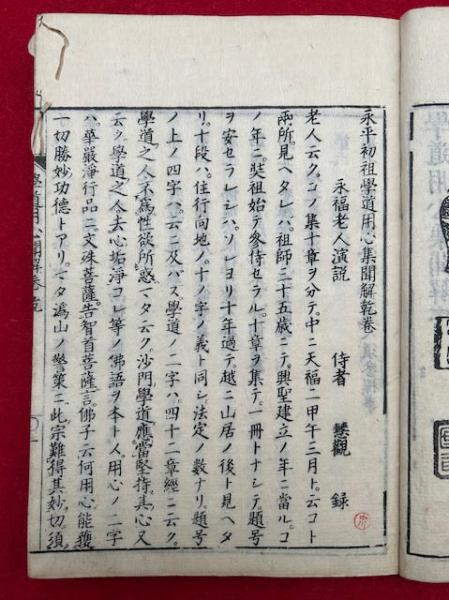 永平初祖學道用心集聞解乾卷
永福老人演説　侍者　慧觀　録
老人云ク。コノ集十章ヲ分テ。中ニ天福二甲午三月ト。云コト
兩所。見ヘタレバ。祖師三十五歳ニテ。興聖建立ノ年ニ當ル。コ
ノ年ニ。奘祖始テ參侍セラル。十章ヲ集テ。一冊トナシテ。題号
ヲ安セラレシハ。ソレヨリ十年過テ。越ニ山居ノ後ト見ヘタ
リ。十段ハ。住行向地ノ。十ノ字ノ義ト同シ法定ノ數ナリ。題号
ノ上ノ四字ハ。云ニ及バズ。學道ノ二字ハ。四十二章經ニ云ク。
學道之人不爲性欲所惑。マタ云ク。沙門學道應當堅持其心又
云ク。學道之人去心垢淨コレ等ノ佛語ヲ本ト人。用心ノ二字
ハ。華嚴淨行品ニ文殊菩薩。告智首菩薩言。佛子云何用心能獲
一切勝妙功德トアリ。マタ潙山ノ警策ニ。此宗難得其妙切須
學道用心聞解卷乾